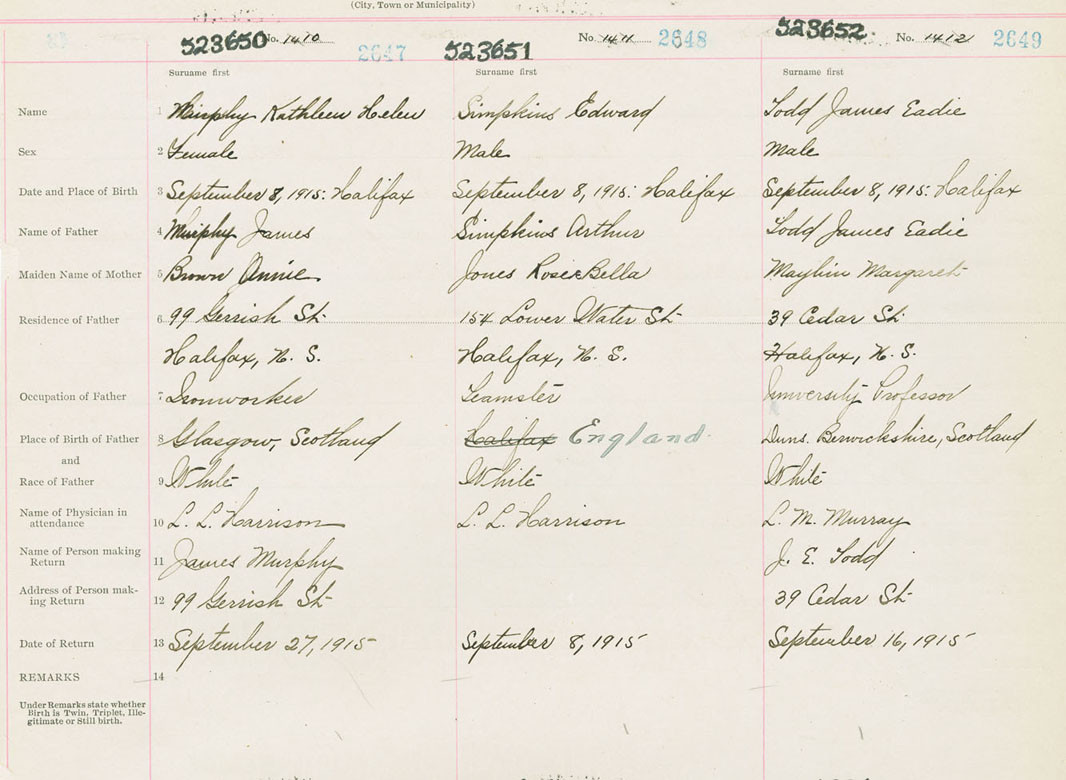 (City, Town or Municipality)
523650 No. 1410 2647 523651 No. 1411 2648 523652 No. 1412 2649
Surname first Surname first Surname first
Name 1 Murphy Kathleen Helen Simpkins Edward Todd James Eadie
Sex 2 Female Male Male
Date and Place of Birth 3 September 8, 1915: Halifax September 8, 1915: Halifax September 8, 1915: Halifax
Name of Father 4 Murphy James Simpkins Arthur Todd James Eadie
Maiden Name of Mother 5 Brown Annie Jones Rosie Bella Maybin Margaret
Residence of Father 6 99 Gerrish St. 154 Lower Water St. 39 Cedar St.
Halifax, N. S. Halifax, N. S. Halifax, N. S.
Occupation of Father 7 Ironworker Teamster University Professor
Place of Birth of Father 8 Glasgow, Scotland Halifax England Duns. Berwickshire, Scotland
and
Race of Father 9 White White White
Name of Physician in
attendance 10 L. L. Harrison L. L. Harrison L. M. Murray
Name of Person making
Return 11 James Murphy J. E. Todd
Address of Person mak-
ing Return 12 99 Gerrish St. 39 Cedar St.
Date of Return 13 September 27, 1915 September 8, 1915 September 16, 1915
REMARKS 14
Under Remarks state whether
Birth is Twin, Triplet, Ille-
gitimate or Still birth.